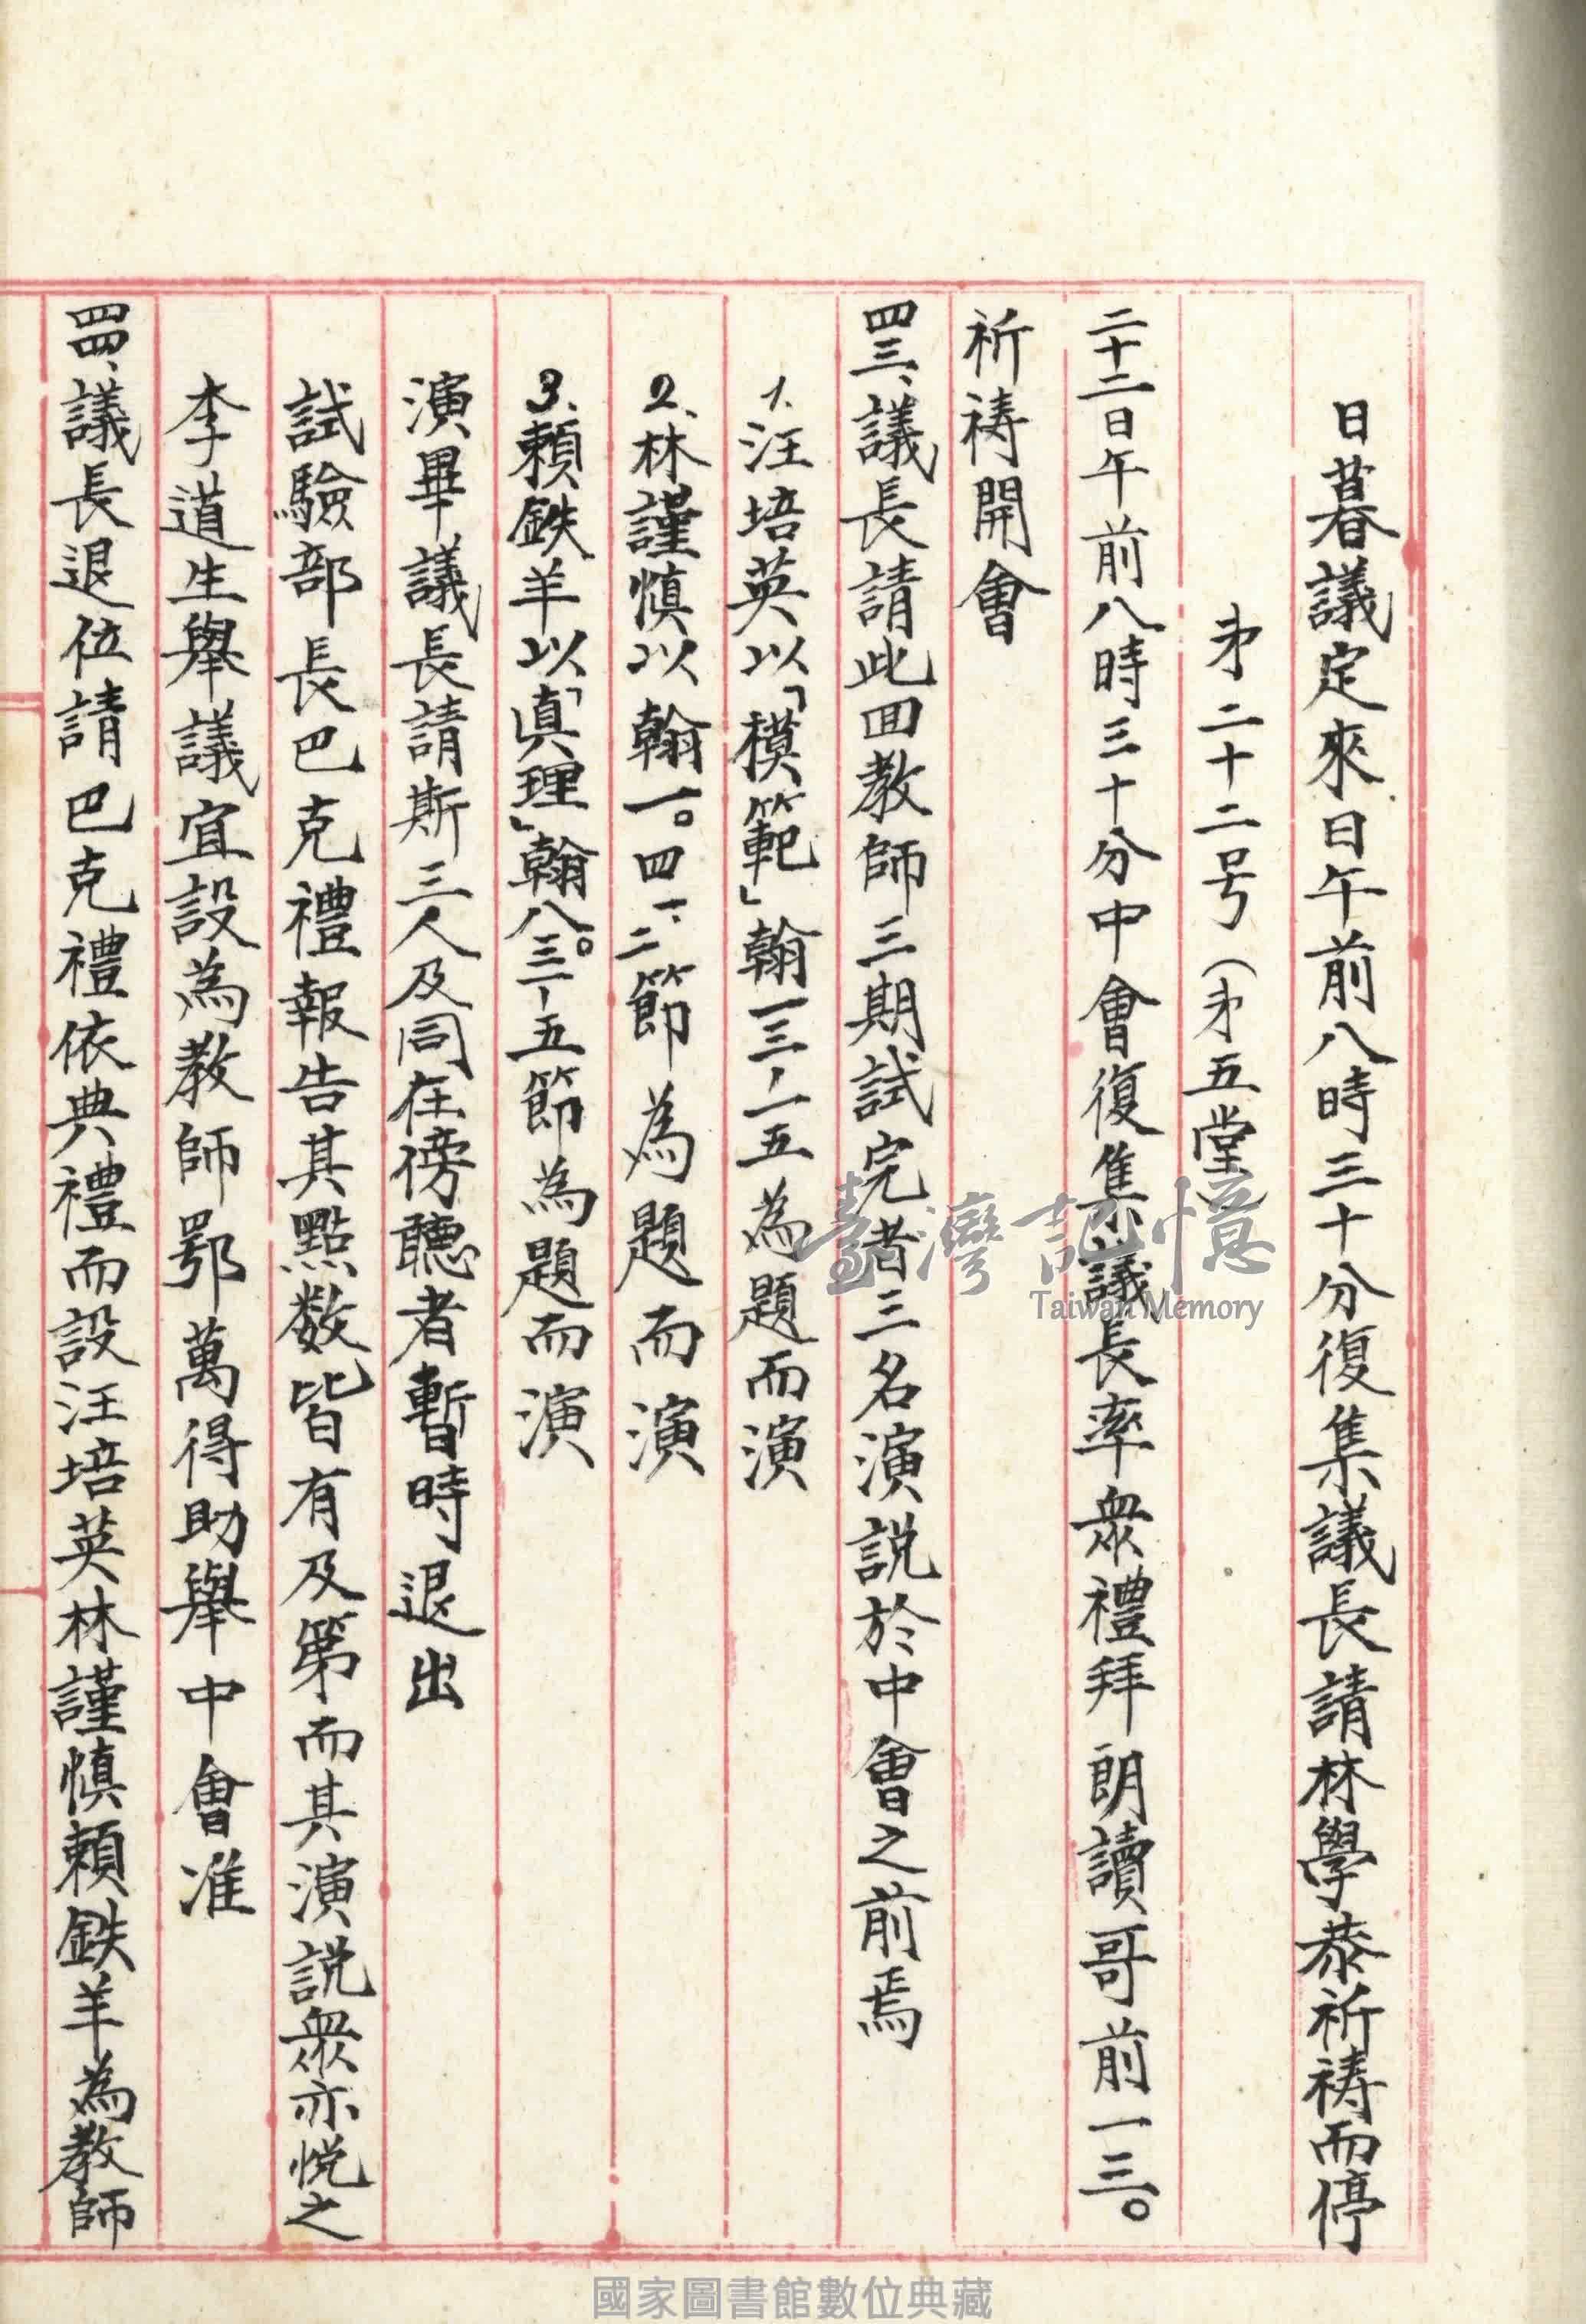 日暮議定來日午前八時三十分復集議長請林學恭祈祷而停
㐧二十二号(㐧五堂)
二十二日午前八時三十分中會復集議長率衆禮拜朗讀哥前一三。
祈祷開會
四三、議長請此囬教師三期試完者三名演説於中會之前焉
1、汪培英以「模範」翰一三ノ一五為題而演
2、林謹慎以翰一。四一、二節為題而演
3、賴鉄羊以「眞理」翰八。三一ノ五節為題而演
演畢議長請斯三人及同在傍聽者暫時退出
試驗部長巴克禮報告其點数皆有及第而其演説衆亦悅之
李道生舉議宜設為教師鄂萬得助舉中會准
四四、議長退位請巴克禮依典禮而設汪培英林謹慎賴鉄羊為教師
臺灣記憶
Taiwan Memory
國家圖書館數位典藏